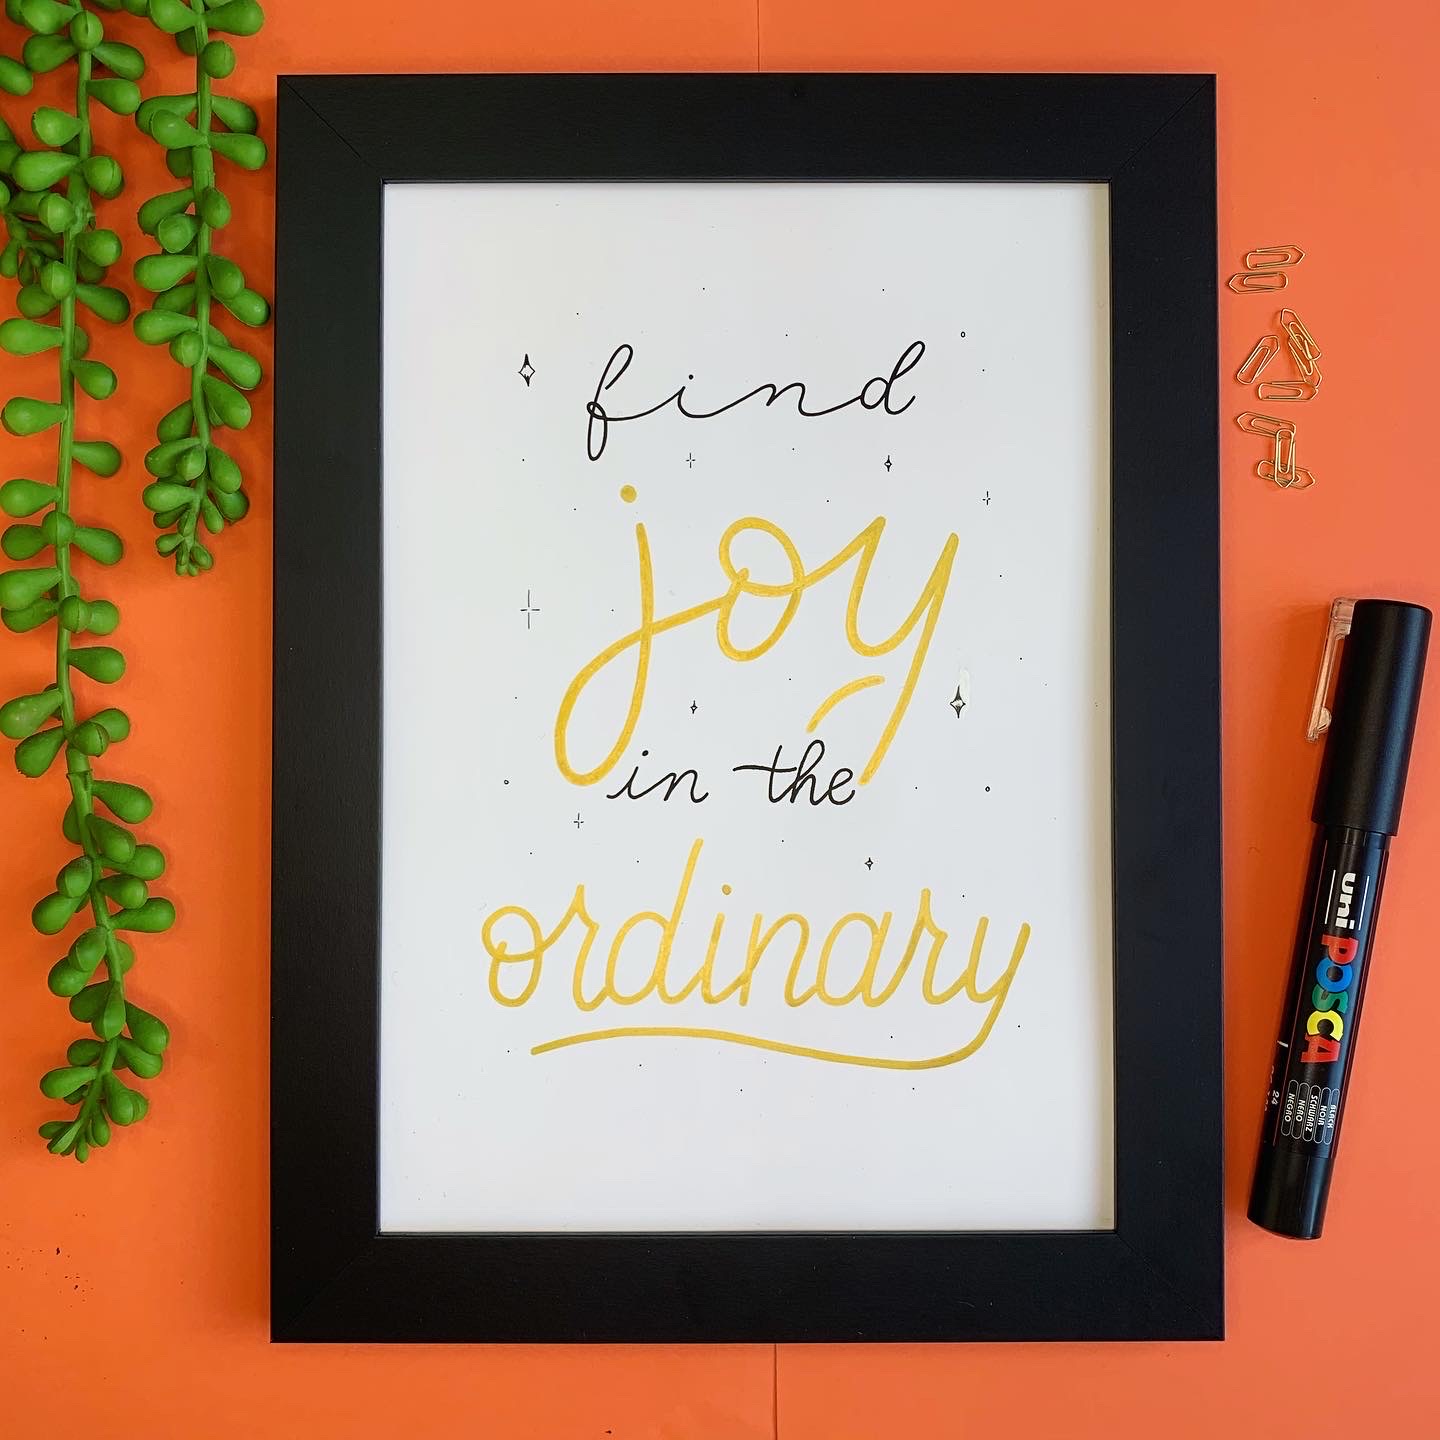 find
joy
in the
ordinary
uni POSCA
24
BLACK
NOIR
SCHWARZ
NERO
NEGRO